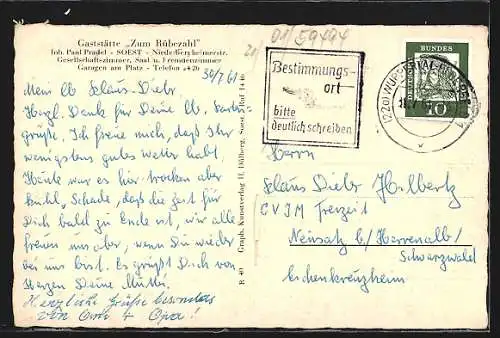 Gaststätte „Zum Rübezahl"
Inh. Paul Pradel - SOEST - Niederbergheimerstr.
Gesellschaftszimmer, Saal u. Fremdenzimmer
Garagen am Platz - Telefon
30/7 61
Mein lb Klaus-Dieter
Herzl. Dank für Deine lb. Karten-
grüße. Ich freue mich, daß Ihr
wenigstens gutes Wetter habt.
Heute war es hier trocken aber
kühl. Schade, daß die Zeit für
Dich bald zu Ende ist, wir alle
freuen uns aber, wenn Du wieder
bei uns bist. Es grüßt Dich von
Herzen Deine Mutti.
Herzliche Grüße besonders
von Oma & Opa!
R 40 Graph. Kunstverlag H. Dülberg, Soest, Ruf
01/59494
21
Bestimmungs-
ort
bitte
deutlich schreiben
(22a) WUPPERTAL-
DEUTSCHE BUNDESPOST
10
Herrn
Klaus Dieter Hilbertz
CVJM Freizeit
Neusatz b/ Herrenalb/
Schwarzwald